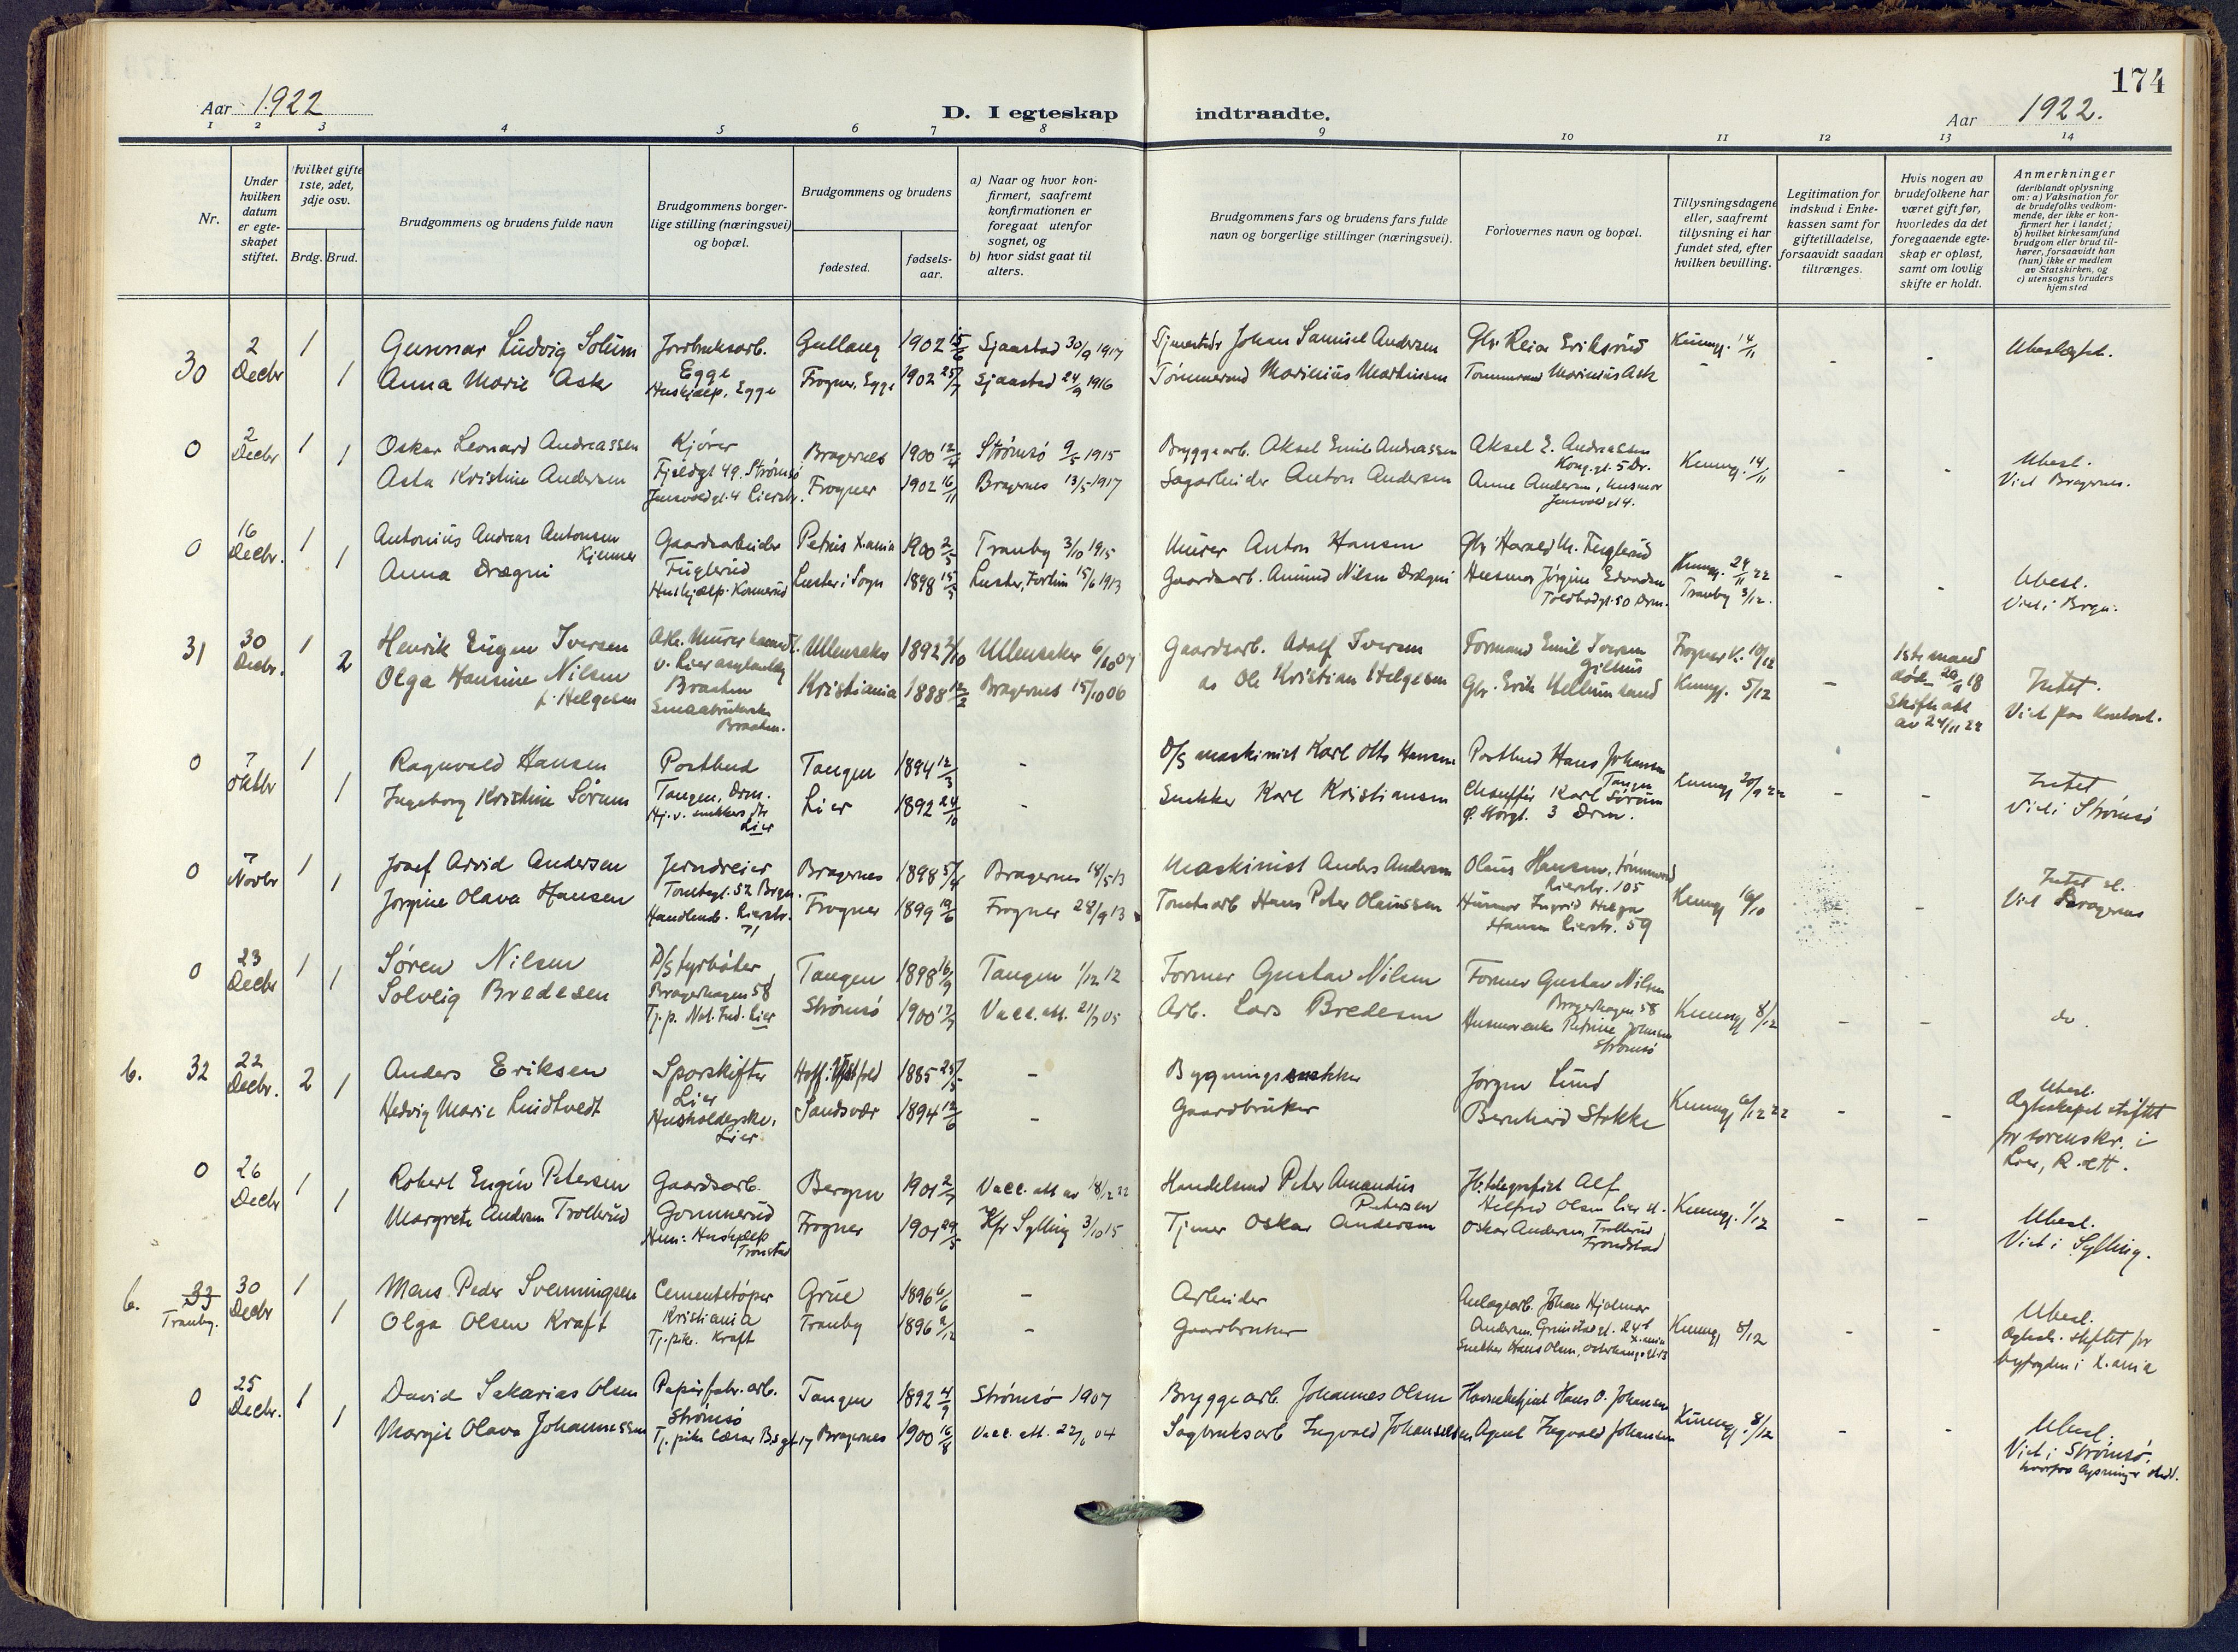 174
Aar 1922
D. I egteskap indtraadte.
Aar 1922.
1 2 3 4 5 6 7 8 9 10 11 12 13 14
Nr.
Under hvilken datum er egteskapet stiftet.
Hvilket gifte 1ste, 2det, 3dje osv.
Brdg. Brud.
Brudgommens og brudens fulde navn
Brudgommens borgerlige stilling (næringsvei) og bopæl.
Brudgommens og brudens
fødested.
fødselsaar.
a) Naar og hvor konfirmert, saafremt konfirmationen er foregaat utenfor sognet, og
b) hvor sidst gaat til alters.
Brudgommens fars og brudens fars fulde navn og borgerlige stillinger (næringsvei).
Forlovernes navn og bopæl.
Tillysningsdagene eller, saafremt tillysning ei har fundet sted, efter hvilken bevilling.
Legitimation for indskud i Enkekassen samt for giftetilladelse, forsaavidt saadan tiltrænges.
Hvis nogen av brudefolkene har været gift før, hvorledes da det foregaaende egteskap er opløst, samt om lovlig skifte er holdt.
Anmerkninger
(deriblandt oplysning om: a) Vaksination for de brudefolks vedkommende, der ikke er konfirmert her i landet; b) hvilket kirkesamfund brudgom eller brud tilhører, forsaavidt han (hun) ikke er medlem av Statskirken, og c) utensogns bruders hjemsted
30 2 Decbr 1 Gunnar Ludvig Solum Jordbruksarb. Egge Gullaug 1902 15/6 Sjaastad 30/9 1917 Johan Samuel Andersen Gbr. Reier Eriksrud Kunngj. 14/11 - - Ubeslegtet.
1 Anna Marie Ask Hushjælp. Egge Frogner, Egge 1902 25/7 Sjaastad 24/9 1916 Tømmermand Marinius Martinsen Tømmermand Marinius Ask
0 2 Decbr 1 Oskar Leonard Andreassen Kjører Fjeldgt 49. Strømsø Bragernes 1900 12/4 Strømsø 9/5 1915 Bryggearb. Aksel Emil Andreassen Aksel E. Andreassen Kong.gt. 5 Dr. Kunngj. 14/11 - - Ubesl.
1 Asta Kristine Andersen Jensvoldgt. 4 Lierstr. Frogner 1902 16/11 Bragernes 13/5 1917 Sagarbeider Anton Andersen Anne Andersen, husmor Jensvoldgt 4. Viet Bragernes.
0 16 Decbr. 1 Antonius Andreas Antonsen Kjenner Gaardsarbeider Fuglerud Petrus X.ania 1900 2/5 Tranby 3/10 1915 Murer Anton Hansen Gbr Harald M. Fuglerud Kunngj. 24/11 22 - - Ubesl.
1 Anna Drægni Hushjælp. Konnerud Luster i Sogn 1898 15/5 Luster, Fortun 15/6 1913 Gaardsarb. Amund Nilsen Drægni Husmor Jørgine Edvardsen Toldbodgt. 50 Drm. Tranby 3/12. Viet i Brgn.
31 30 Decbr. 1 Henrik Eugen Iversen v. Lier asylanlæg Braaten Ullensaker 1892 Ullensaker 6/10 07 Gaardsarb. Adolf Iversen Formand Emil Iversen Gilhus Frogner K. 10/12 - 1ste mand død 20/11 18 Intet.
2 Olga Hansine Nilsen f. Helgesen Braaten. Kristiania 1888 12/2 Bragernes 15/10 06 do Ole Kristian Helgesen Gbr. Erik Kunngj. 5/12 Skifteatt av 24/11 22 Viet paa Kontoret.
0 7 Oktbr 1 Ragnvald Hansen Postbud Tangen, Drm. Tangen 1894 12/3 - D/S maskinist Karl Otto Hansen Postbud Hans Johansen Tangen Kunngj 20/9 22 - - Intet
1 Ingeborg Kristine Sørum Hj. v. snekkers dtr Lier Lier 1892 24/10 - Snekker Karl Kristiansen Chauffør Karl Sørum Ø. Storgt. 3 Drm. Viet i Strømsø
0 7 Novbr 1 Josef Arvid Andersen Jerndreier Tomtegt. 52 Brgn. Bragernes 1898 5/4 Bragernes 18/5 13 Maskinist Anders Andersen Olaus Hansen, tømmermd Lierstr. 105 Kunngj 16/10 - - Intet sl.
1 Jørgine Olava Hansen Handlende. Lierstr. 71 Frogner 1899 19/6 Frogner 28/9 13 Tomtearb Hans Peter Olaussen Husmor Ingrid Helga Hansen Lierstr. 59 Viet Bragernes
0 23 Decbr 1 Søren Nilsen D/S fyrbøter Bragerhagen 58 Tangen 1898 16/9 Tangen 1/12 12 Former Gustav Nilsen Former Gustav Nilsen Bragerhagen 58 Kunngj 8/12 - - do.
1 Solveig Bredesen Tj. p. Nat. Ind. Lier Strømsø 1900 17/7 Vacc. att. 21/7 05 Arb. Lars Bredesen Husmor enke Petrine Johnsen Strømsø
b. 32 22 Decbr. 2 Anders Eriksen Sporskifter Lier Hoff. Vestfold 1885 25/5 - Bygningssnekker Jørgen Lund Kunngj 6/12 22 - - Ubesl.
1 Hedvig Marie Lindtvedt Husholderske. Lier Sandsvær 1894 12/6 - Gaardbruker Bernhard Stokke Egteskapet stiftet for sorenskr. i Lier, R. &H.
0 26 Decbr 1 Robert Eugen Petersen Gaardsarb. Gommerud Bergen 1901 2/7 Vacc. att av 18/12 22 Handelsmd Peter Amandus Petersen Jb.telegrafist Alf Helfred Olsen Lier st. Kunngj. 1/12 - - Ubesl.
1 Margrete Andersen Trollerud Hun: Hushjælp Tronstad Frogner 1901 29/5 Kfr Sylling 3/10 15 Tjener Oskar Andersen Oskar Andersen, Trollerud Trondstad Viet i Sylling.
b. 33 Tranby. 30 Decbr 1 Mons Peder Svenningsen Cementstøper Kristiania Grue 1896 6/6 - Arbeider Anlægsarb. Johan Hjalmar Andersen Grimstadgt. 24b X.ania Kunngj 8/12 - - Ubesl.
1 Olga Olsen Kraft Tj.pike. Kraft Tranby 1896 2/12 - Gaardbruker Snekker Hans Olsen, Egtesk. stiftet for byfogden i X.ania
0 25 Decbr. 1 David Sakarias Olsen Papirfabr. arb. Strømsø Tangen 1892 4/9 Strømsø 1907 Bryggearb. Johannes Olsen Hans O. Johansen Kunngj. 8/12 - - Ubesl.
1 Margit Olava Johannessen Tj. pike Cæsar B.s gt. 17 Bragernes 1900 16/8 Vacc. att. 22/6 04 Sagbruksarb Ingvald Johannessen Agnel Ingvald Johansen Viet i Strømsø.